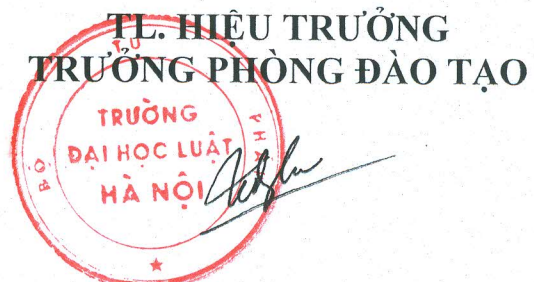 TL. HIỆU TRƯỞNG
TRƯỞNG PHÒNG ĐÀO TẠO
BỘ TƯ PHÁP
TRƯỜNG
ĐẠI HỌC LUẬT
HÀ NỘI